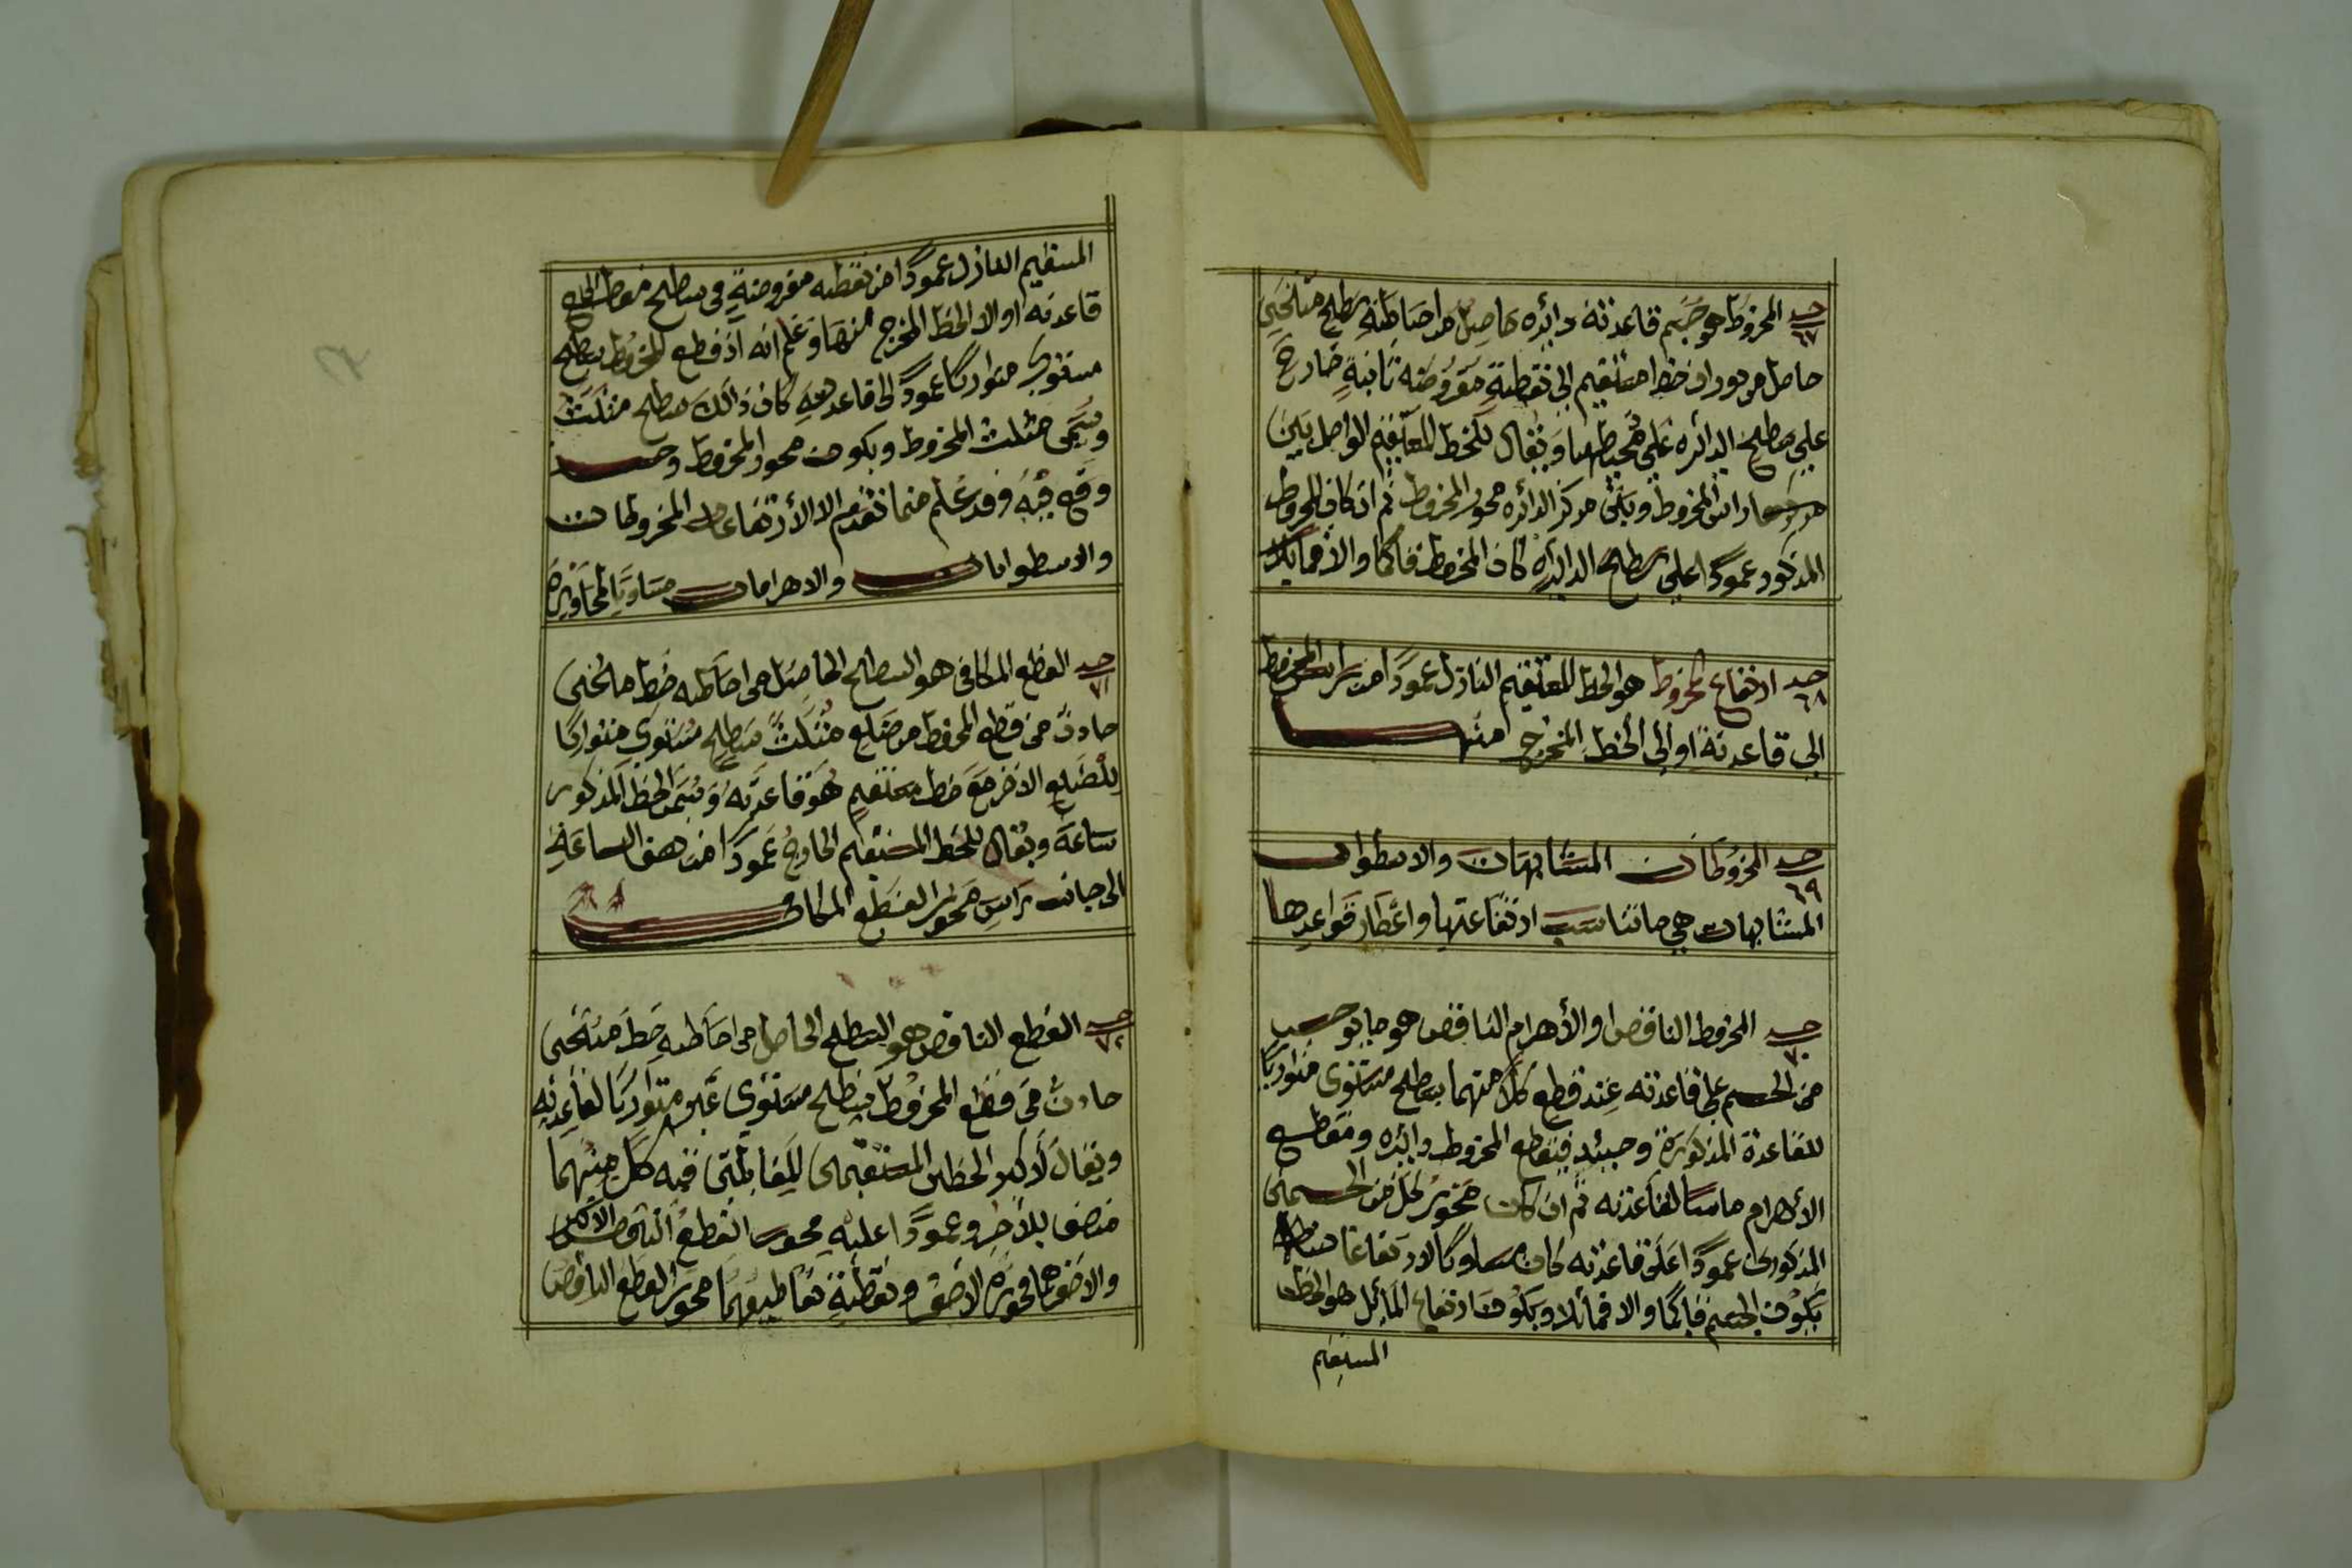 حد ٦٧ المخروط هو جسم قاعدته دائره حاصل من احاطته سطح منحني
حاصل من دوران خط مستقيم الى نقطة مفروضه ثابتة خارج
على سطح الدائره على محيطها ويقال للخط المستقيم الواصل بين
راس المخروط وبين مركز الدائره محور المخروط ثم ان كان المخروط
المذكور عمودًا على سطح الدائره كان المخروط قائما والا فمايلا
حد ٦٨ ارتفاع المخروط هو الخط المستقيم النازل عمودًا من راس المخروط
الى قاعدته او الى الخط المخرج منها
حد ٦٩ المخروطات المتشابهات والاسطوانات
المتشابهات هي ما تناسب ارتفاعتها واقطار قواعدها
حد ٧٠ المخروط الناقص او الأهرام الناقص هو ما يوجد
من الجسم على قاعدته عند قطع كلا منهما بسطح مستوى متوازيا
للقاعدة المذكورة وحينئذ فيقطع المخروط دائره ومقطع
الأهرام ماسا لقاعدته ثم ان كان محور لكل من الجسمين
المذكورين عمودًا على قاعدته كان مساويا لارتفاعا
يكون الجسم قائما والا فمائلا ويكون ارتفاع المائل هو الخط
المستقيم
المستقيم النازل عمودًا من نقطه مفروضةٍ في سطح مقطع الى
قاعدته او الا الخط المخرج منها وعلم انه اذ قطع المخروط بسطح
مستوى متوازيا عمودً الى قاعدته كان ذالك سطح مثلث
ويسمى مثلث المخروط وبكون محور المخروط
فيه وقد علم مما تقدم الا الأرتفاعات المخروطات
والاسطوانات والاهرامات
حد ٧١ القطع المكافى هو السطح الحاصل من احاطه خط منحنى
حادث من قطع المخروط من ضلع مثلث سطح مستوى متوازيا
للضلع الاخر مع خط مستقيم هو قاعدته ويسمى الخط المذكور
ساعة ويقال للخط المستقيم الخارج عمودًا من هذه الساعة
الى جانب راس محور القطع المكافى
حد ٧٢ القطع الناقص هو السطح الحاصل من احاطه خط منحنى
حادث من قطع المخروط بسطح مستوى غير متوازيا لقاعدته
ويقال لأكبر الخطين المستقيمين للمقابلين فيه كل منهما
منصف بلأخر وعمودًا عليه محور القطع الناقص الاكبر
والاصغرهما محوره الاصغر ونقطة تقاطعهما محور القطع الناقص